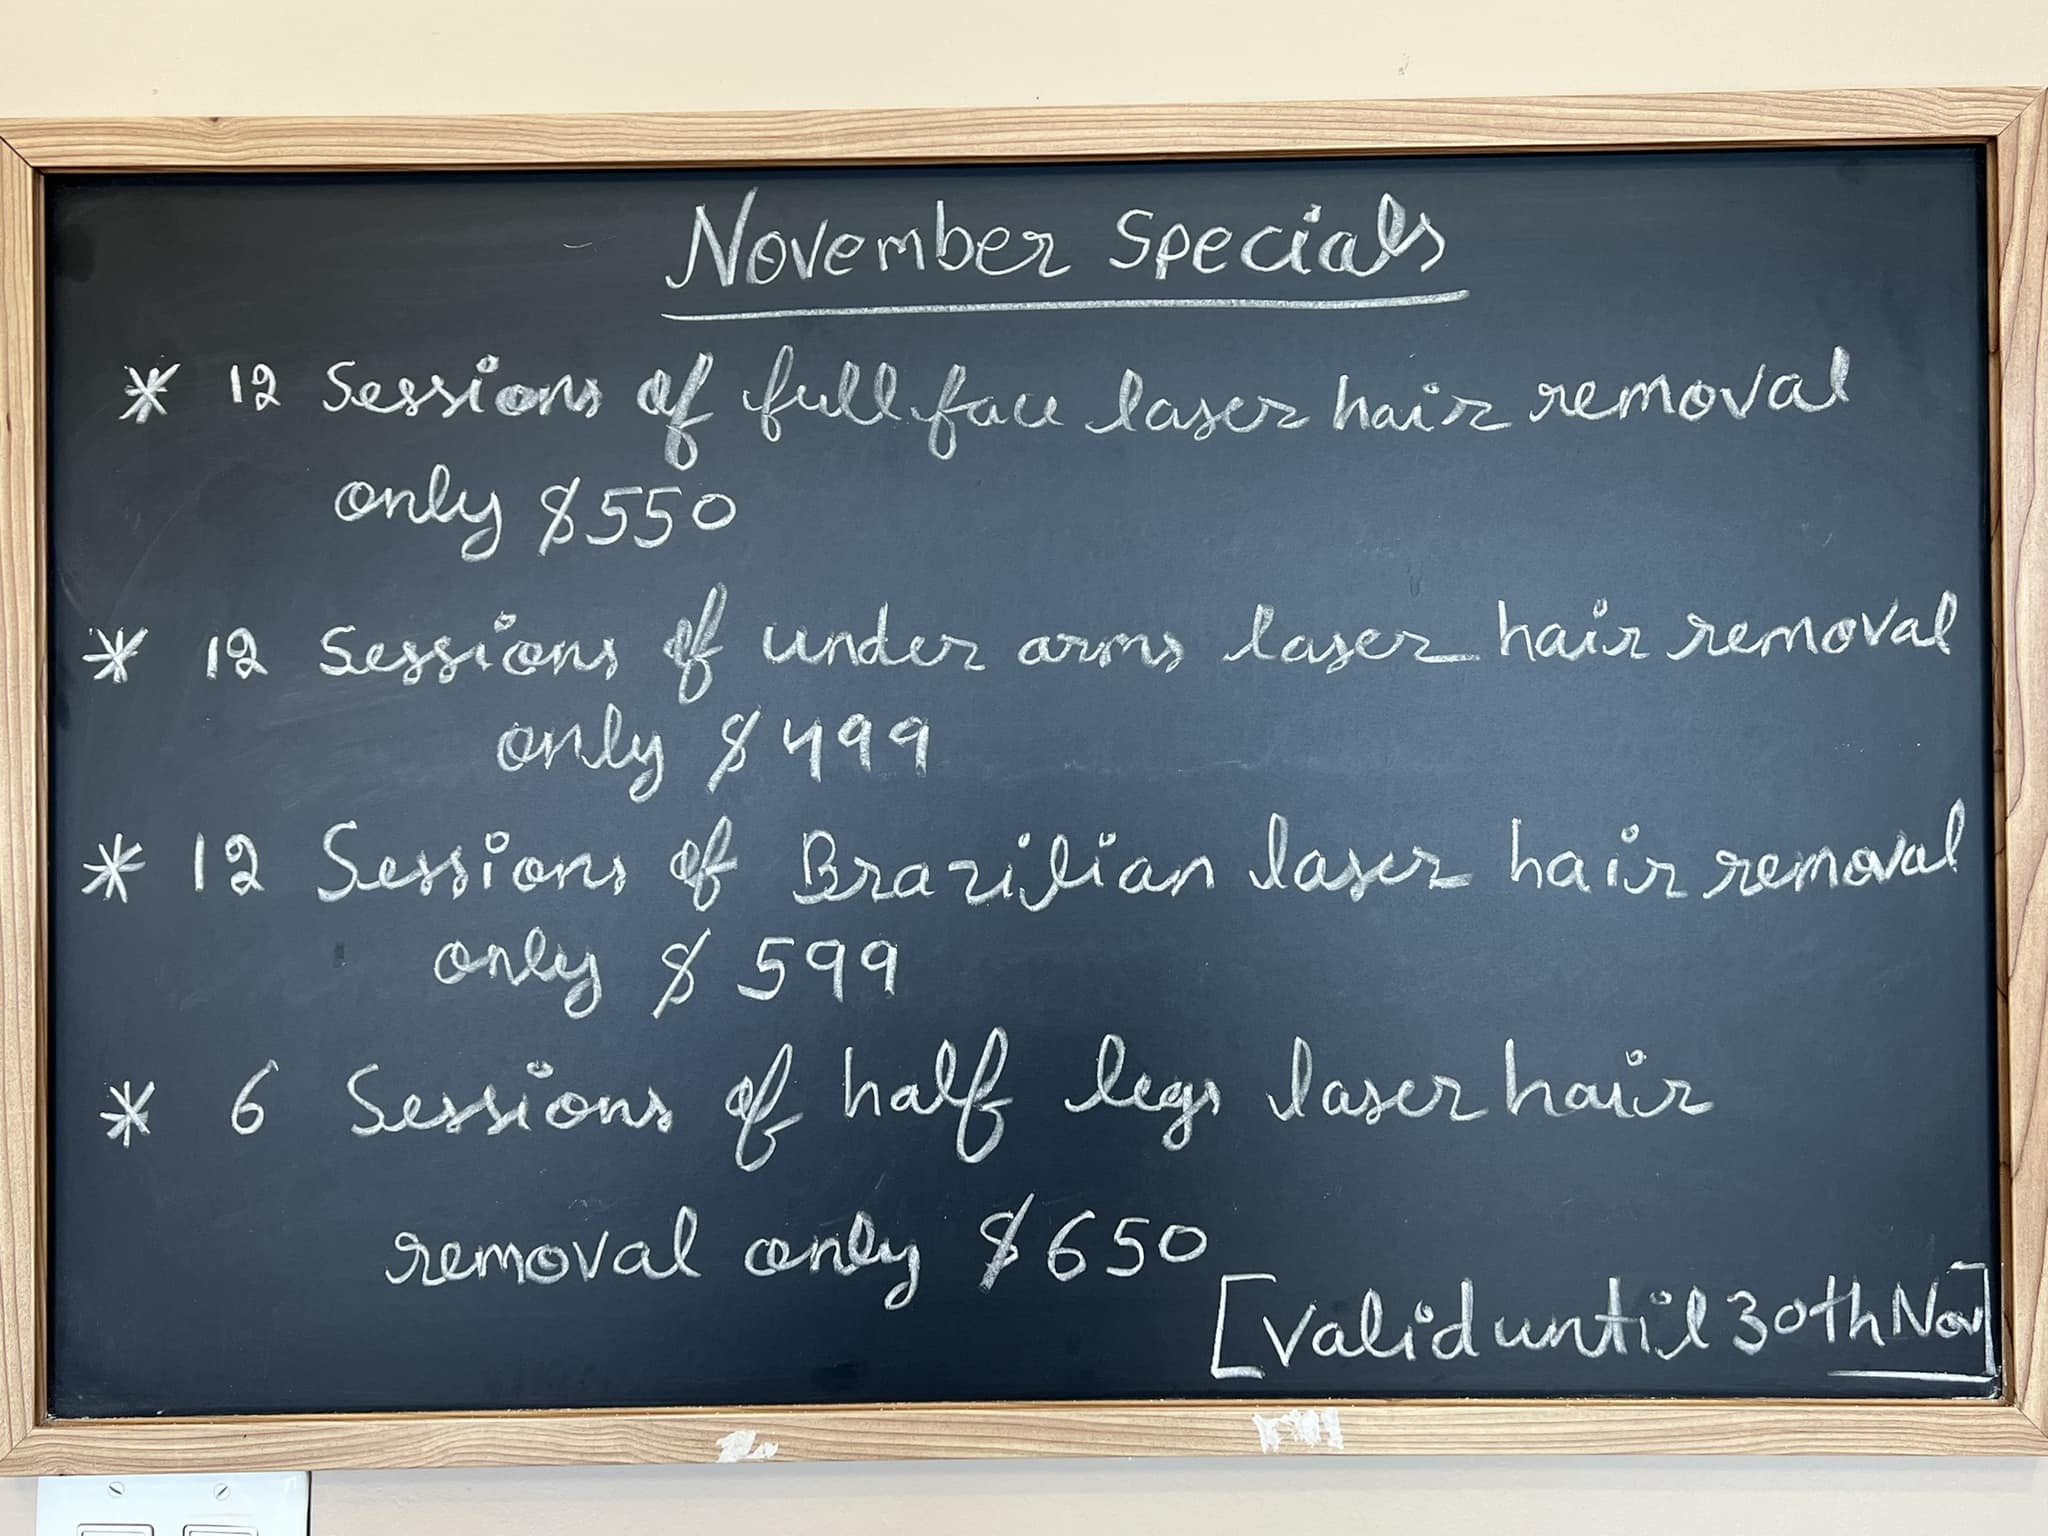 November Specials
* 12 Sessions of full face laser hair removal
only $550
* 12 Sessions of under arms laser hair removal
only $499
* 12 Sessions of Brazilian laser hair removal
only $599
* 6 Sessions of half legs laser hair
removal only $650
[Valid until 30th Nov]